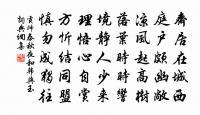 齋居在城西
庭戶頗幽敞
涼風起高樹
落葉時時響
境靜人少來
理悟心自賞
方忻結同盟
慎勿成獨往
秋夜和韩
詞典網集